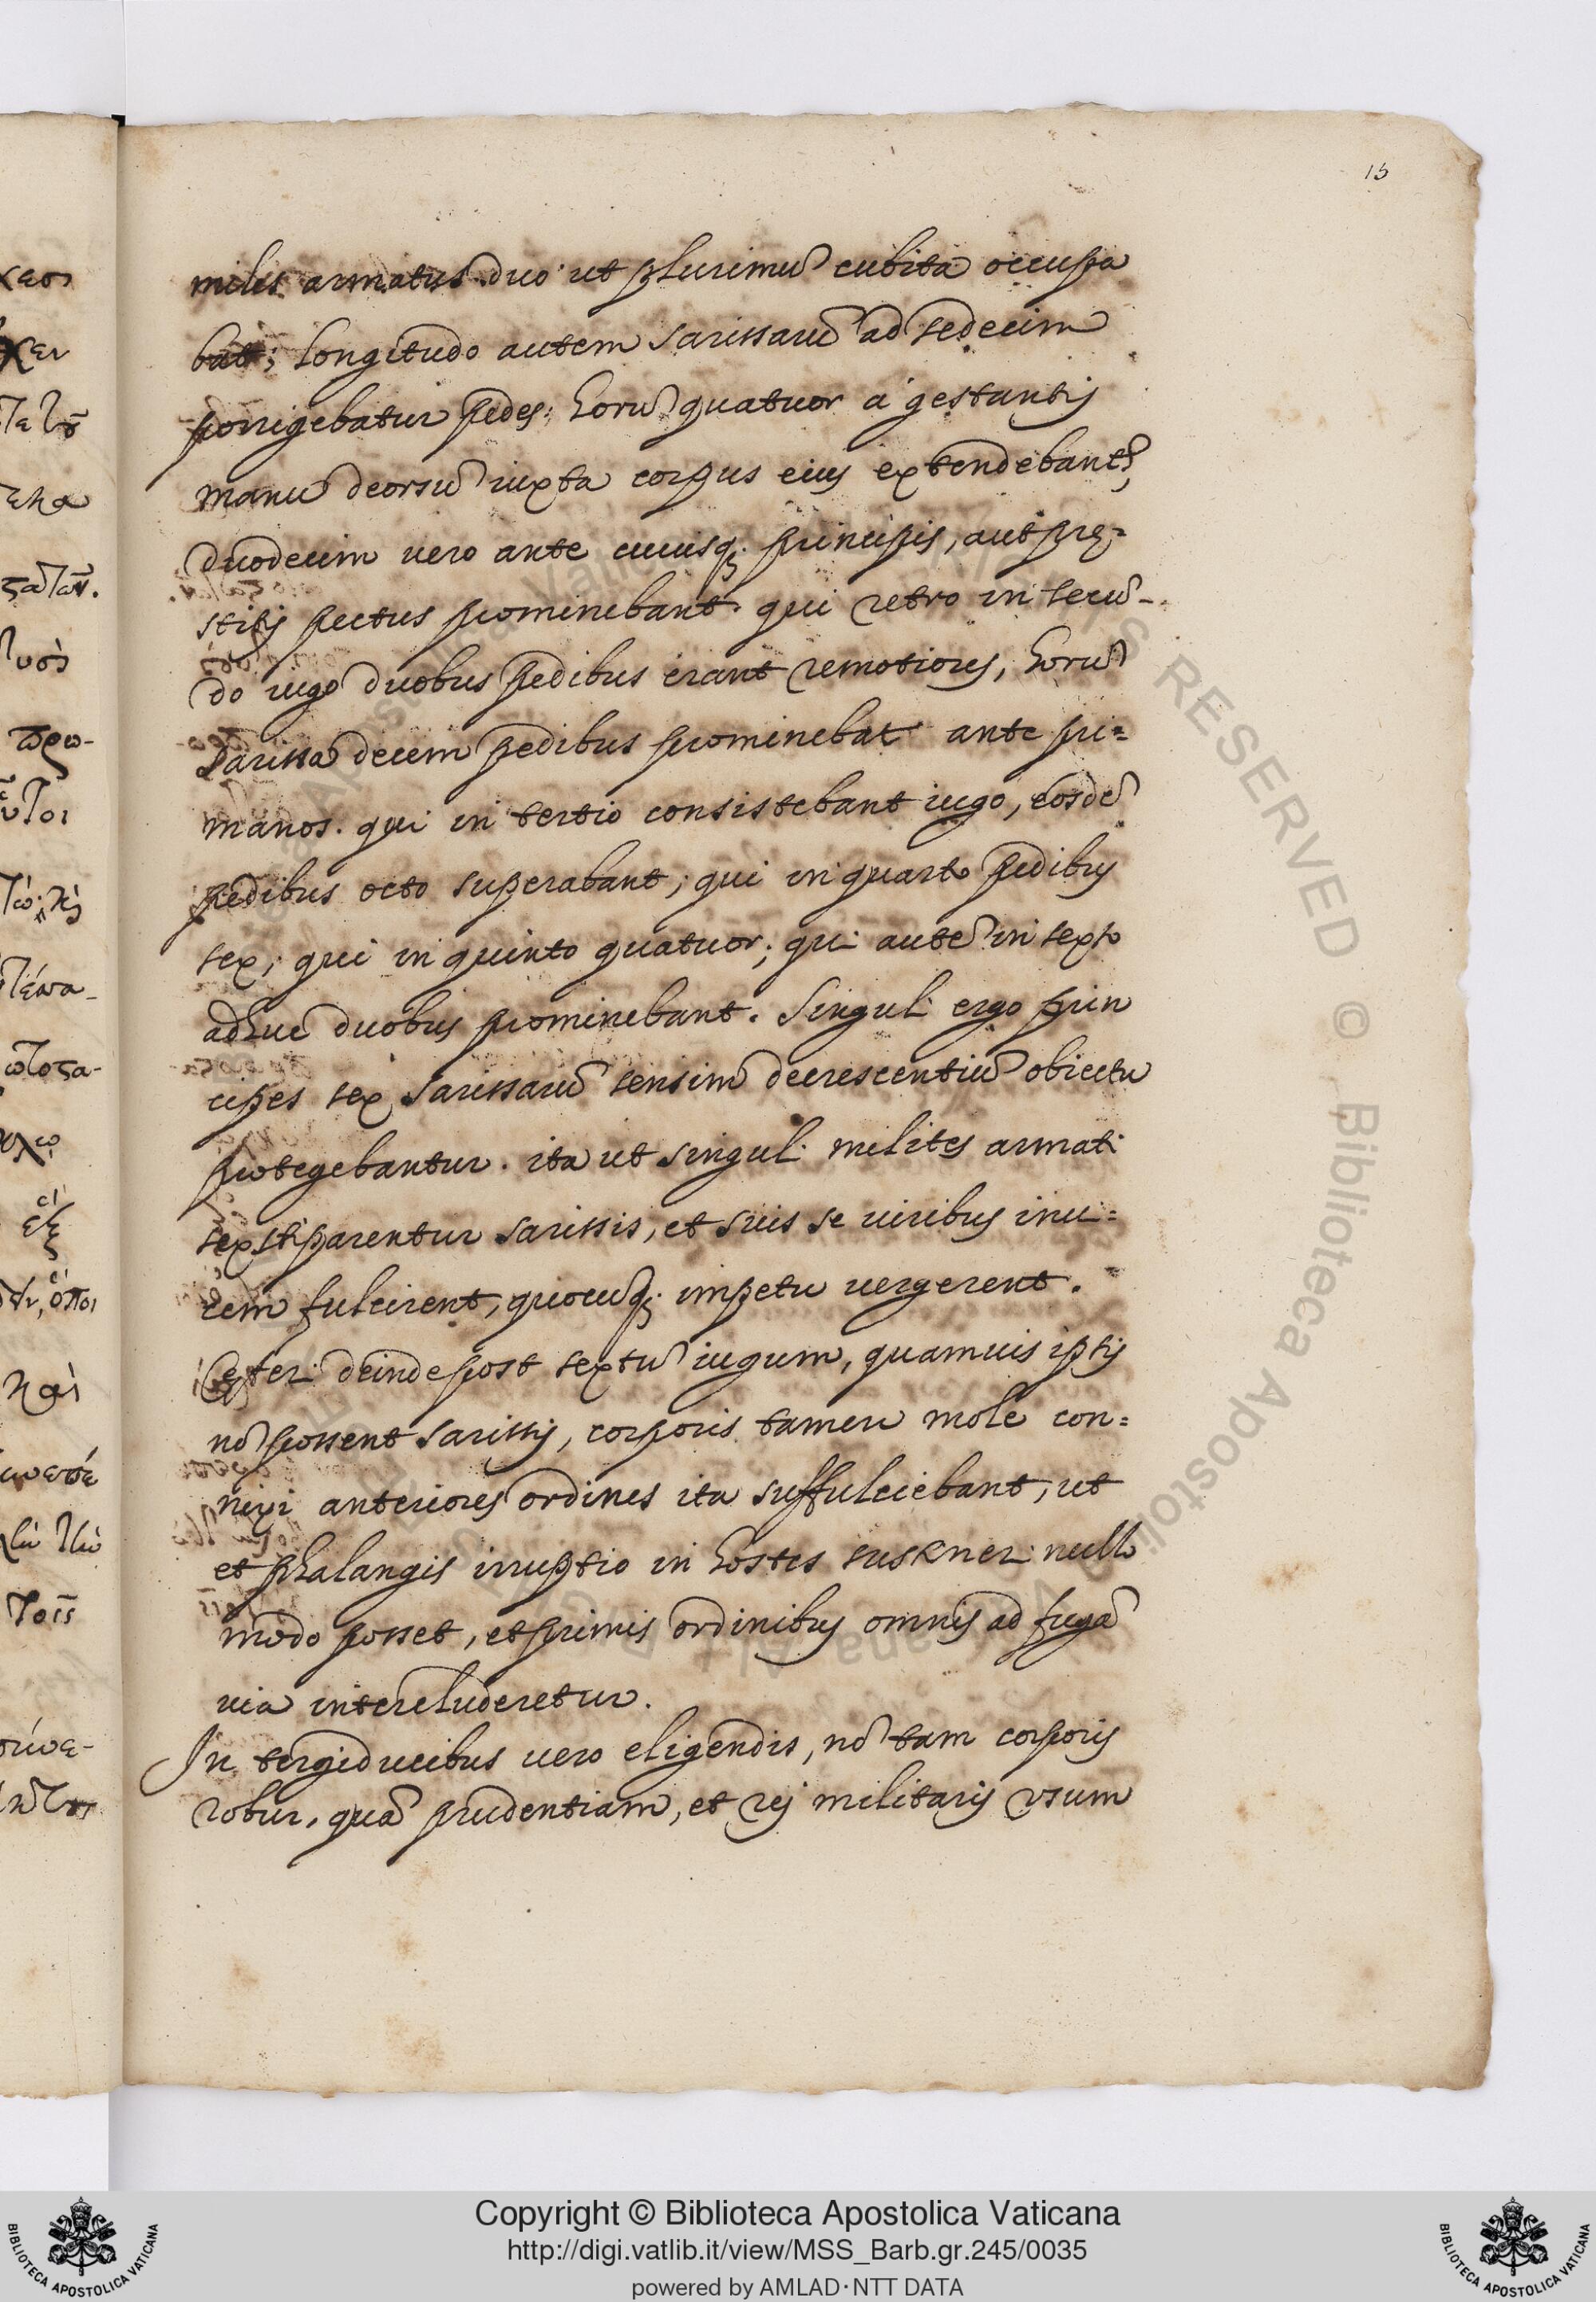 15
miles armatus duo ut plurimū cubita occupa
bat; longitudo autem sarissarū ad sedecim
porrigebatur pedes: horū quatuor à gestantis
manu deorsū iuxta corpus eius extendebant,
duodecim vero ante cuiusq; principis, aut prę=
stitis pectus prominebant. qui retro in secū-
do iugo duobus pedibus erant remotiores, horū
sarissa decem pedibus prominebat ante pri=
manos. qui in tertio consistebant iugo, eosdē
pedibus octo superabant; qui in quarto pedibus
sex; qui in quinto quatuor; qui autē in sexto
adhuc duobus prominebant. Singuli ergo prin
cipes sex sarissarū sensim decrescentiū obiectu
protegebantur. ita ut singuli milites armati
sex stiparentur sarissis, et suis se viribus inui=
cem fulcirent, quocūq; impetu vergerent.
Cęteri deinde post sextū iugum, quamuis ipsis
nō possent sarissis, corporis tamen mole con=
nixi anteriores ordines ita suffulciebant, ut
et phalangis irruptio in hostes sustineri nullo
modo posset, et primis ordinibus omnis ad fugā
via intercluderetur.
In tergiducibus vero eligendis, nō tam corporis
robur, quā prudentiam, et rei militaris usum
χεσι
χεν
τετρ
πρω-
καὶ
τοῖς
BIBLIOTECA APOSTOLICA VATICANA
Copyright © Biblioteca Apostolica Vaticana
http://digi.vatlib.it/view/MSS_Barb.gr.245/0035
powered by AMLAD·NTT DATA
BIBLIOTECA APOSTOLICA VATICANA